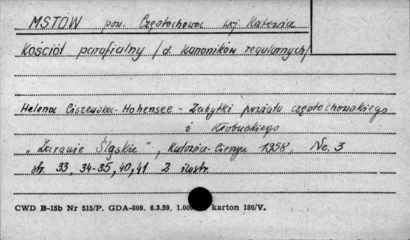 MSTÓW pow. Częstochowa woj. Katowice
Kościół parafialny /d. kanoników regularnych/
Helena Ciszewska-Hohensee - Zabytki powiatu częstochowskiego
i Kłobuckiego
"Zaranie Śląskie", Katowice-Cieszyn 1958, Nr. 3
str. 33, 34-35, 40, 41 2 ilustr.
CWD B-15b Nr 515/P. GDA-809. 6.3.59. 1.00 karton 180/V.